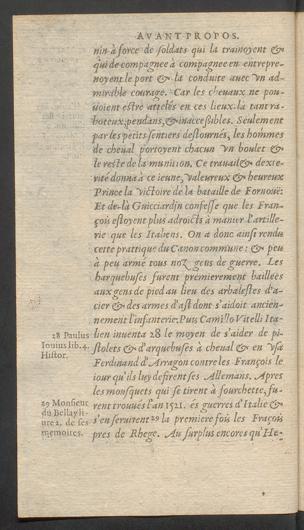 AVANT-PROPOS.
nin à force de soldats qui la trainoyent &
qui de compagnee à compagnee en entrepre-
noyent le port & la conduite auec vn ad-
mirable courage. Car les cheuaux ne pou-
uoient estre attelés en ces lieux-la tant ra-
boteux, pendans, & inaccessibles. Seulement
par les petits sentiers destournés, les hommes
de cheual portoyent chacun vn boulet &
le reste de la munition. Ce trauail & dexte-
rité donna à ce ieune, valeureux & heureux
Prince la victoire de la bataille de Fornouë:
Et de-là Guicciardin confesse que les Fran-
çois estoyent plus adroicts à manier l'artille-
rie que les Italiens. On a donc ainsi rendu
cette prattique du Canon commune: & peu
à peu armé tous noz gens de guerre. Les
harquebuses furent premierement baillees
aux gens de pied au lieu des arbalestes d'a-
cier & des armes d'ast dont s'aidoit ancien-
nement l'infanterie. Puis Camillo Vitelli Ita-
28 Paulus
Iouius lib. 4.
Histor.
lien inuenta 28 le moyen de s'aider de pi-
stolets & d'arquebuses à cheual & en vsa
Ferdinand d'Arragon contre les François le
iour qu'ils luy defirent ses Allemans. Apres
les mousquets qui se tirent à fourchette, fu-
29 Monsieur
du Bellay li-
ure 2. de ses
memoires.
rent trouués l'an 1521. és guerres d'Italie &
s'en seruirent 29 la premiere fois les Fraçois
pres de Rhege. Au surplus encores qu'He-